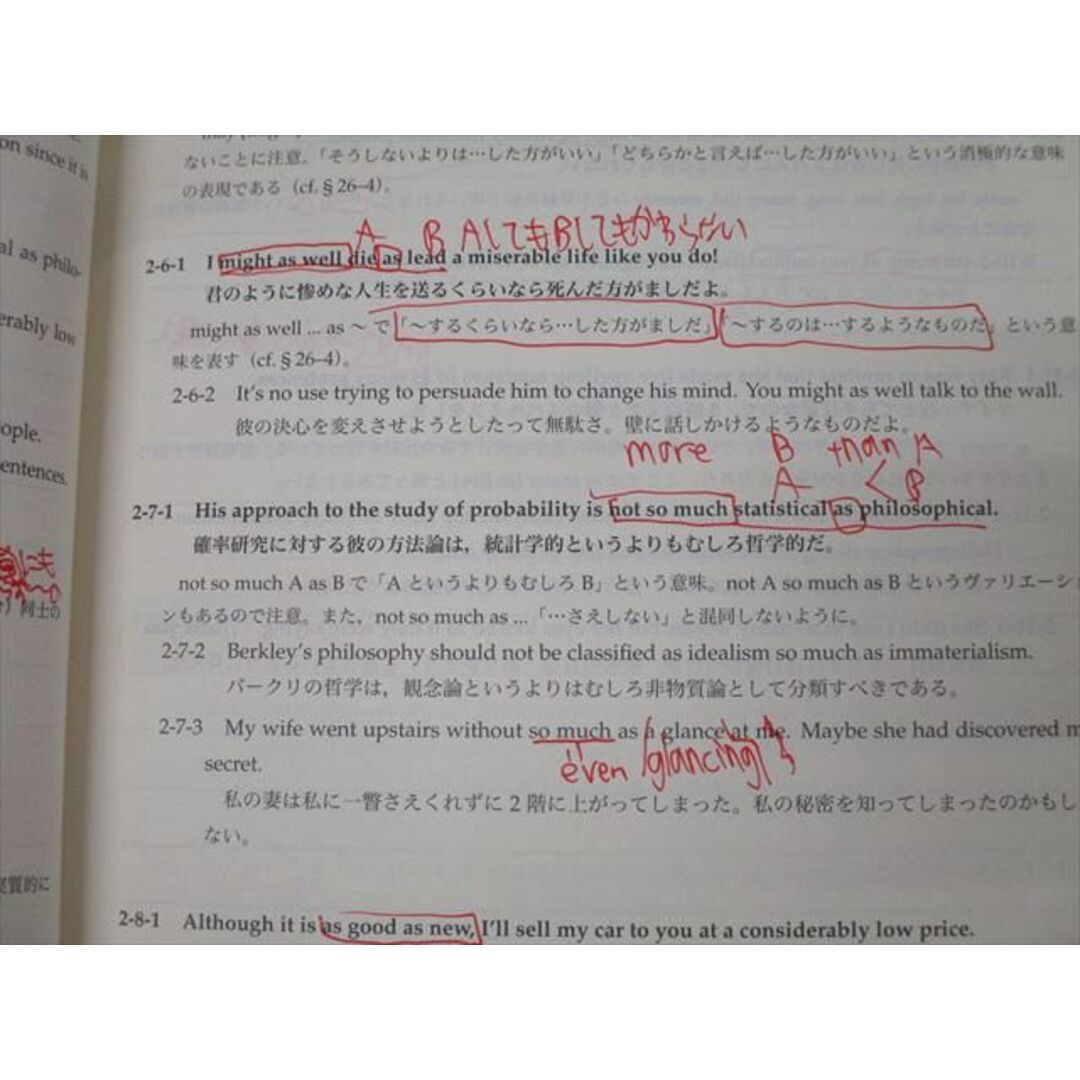 on since it is
al as philo-
erably low
ople.
entences.
同士の
質的に
ないことに注意。「そうしないよりは…した方がいい」「どちらかと言えば…した方がいい」という消極的な意味
の表現である（cf. § 26–4）。
A B AしてもBしてもかわらない
2-6-1 I might as well die as lead a miserable life like you do!
君のように惨めな人生を送るくらいなら死んだ方がましだよ。
might as well ... as ～ で「～するくらいなら…した方がましだ」「～するのは…するようなものだ」という意
味を表す（cf. § 26–4）。
2-6-2 It's no use trying to persuade him to change his mind. You might as well talk to the wall.
彼の決心を変えさせようとしたって無駄さ。壁に話しかけるようなものだよ。
more B than A
A < B
2-7-1 His approach to the study of probability is not so much statistical as philosophical.
確率研究に対する彼の方法論は，統計学的というよりもむしろ哲学的だ。
not so much A as B で「A というよりもむしろ B」という意味。not A so much as B というヴァリエーショ
ンもあるので注意。また，not so much as ...「…さえしない」と混同しないように。
2-7-2 Berkley's philosophy should not be classified as idealism so much as immaterialism.
バークリの哲学は，観念論というよりはむしろ非物質論として分類すべきである。
2-7-3 My wife went upstairs without so much as a glance at me. Maybe she had discovered m
secret.
even glancing
私の妻は私に一瞥さえくれずに 2 階に上がってしまった。私の秘密を知ってしまったのかもし
ない。
2-8-1 Although it is as good as new, I'll sell my car to you at a considerably low price.